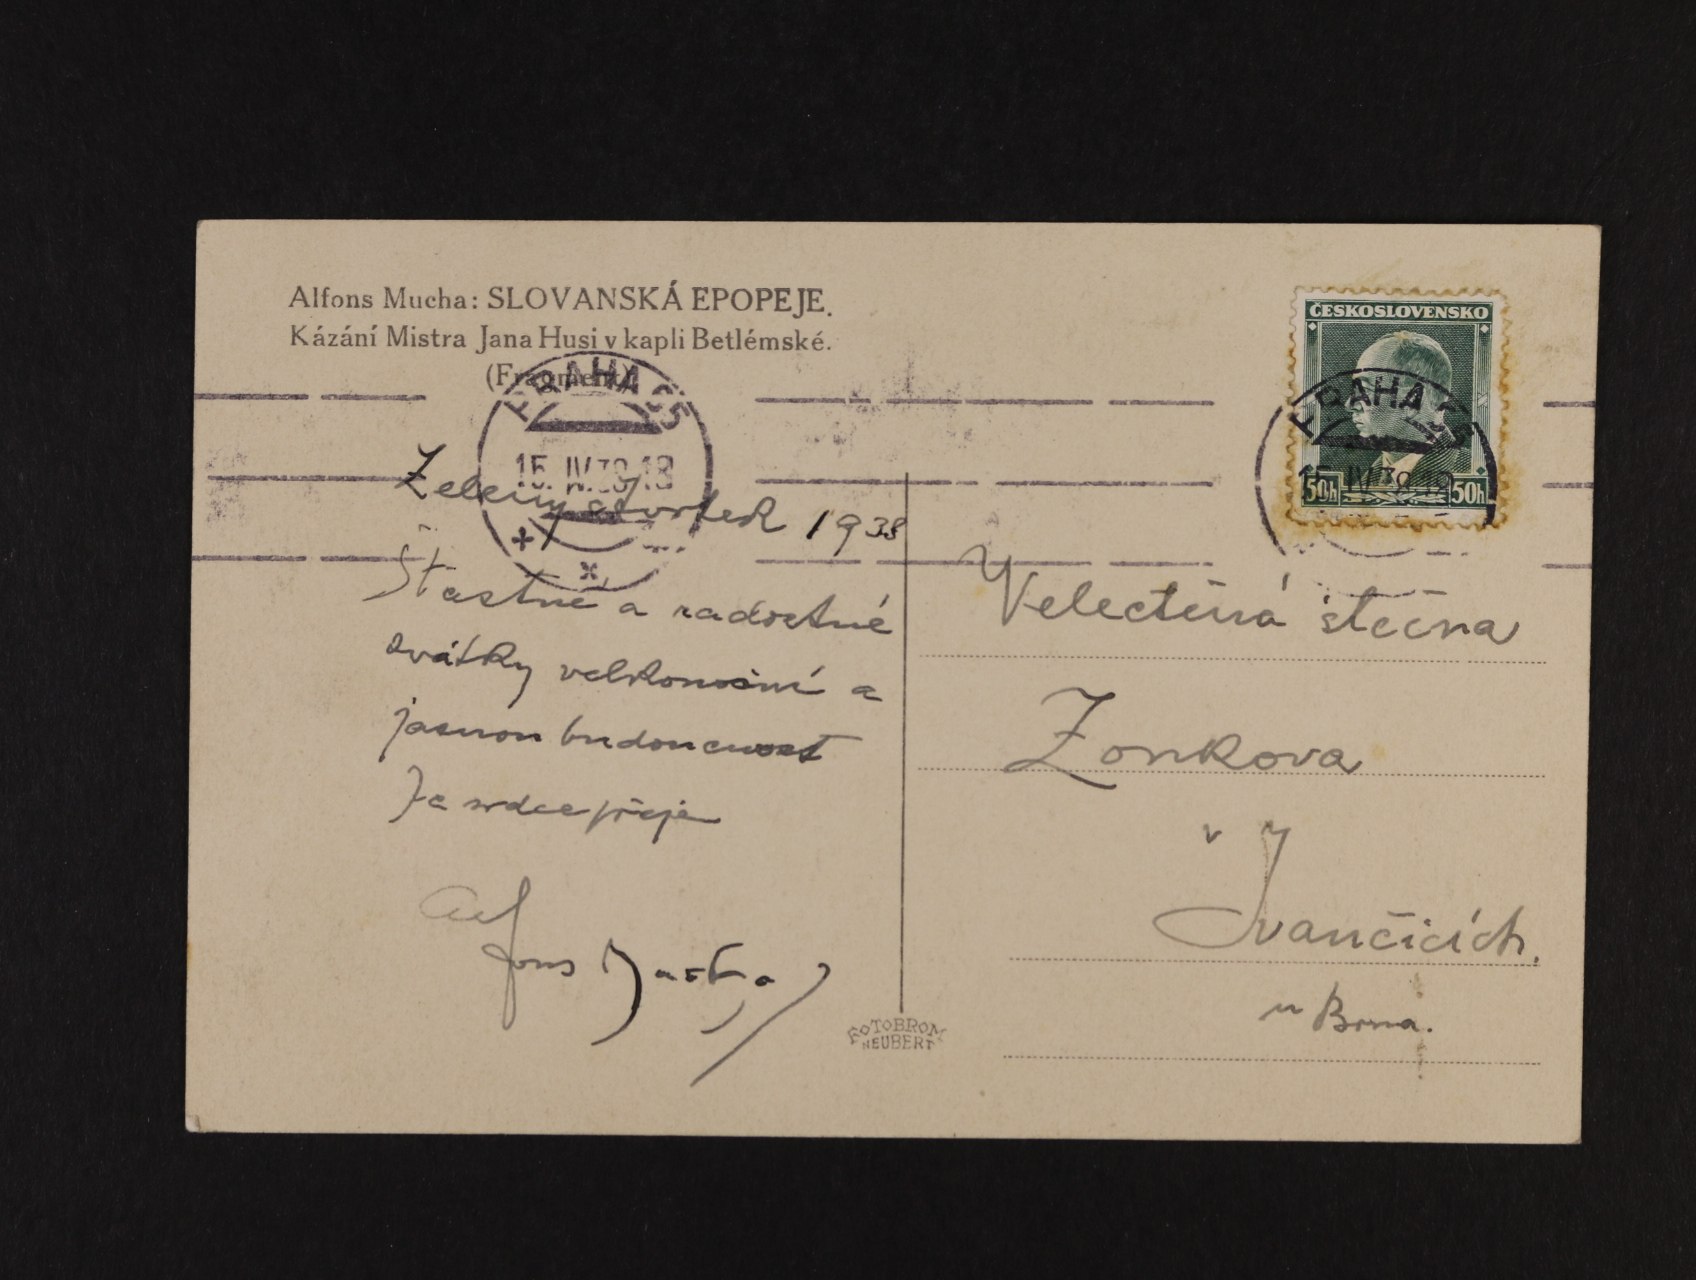 Alfons Mucha: SLOVANSKÁ EPOPEJE.
Kázání Mistra Jana Husi v kapli Betlémské.
(Fragment)
PRAHA 55
15. IV. 38. 18
Zelený čtvrtek 1938
Šťastné a radostné
svátky velkonoční a
jasnou budoucnost
ze srdce přeje
Alfons Mucha
FOTOBROM
NEUBERT
ČESKOSLOVENSKO
PRAHA 55
15. IV. 38. 18
50h 50h
Velectěná slečna
Zonkova
v
Ivančicích.
u Brna.